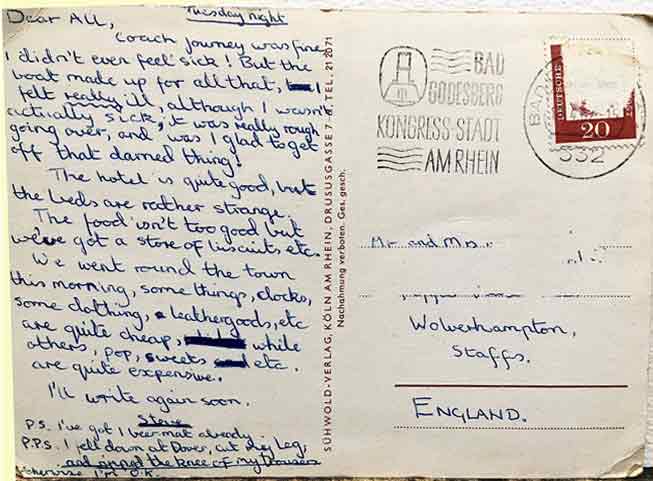 Tuesday night
Dear All,
Coach journey was fine,
I didn't even feel sick! But the
boat made up for all that, I
felt really ill, although I wasn't
actually sick, it was really rough
going over, and was I glad to get
off that darned thing!
The hotel is quite good, but
the beds are rather strange.
The food isn't too good but
we've got a store of biscuits etc.
We went round the town
this morning, some things, clocks,
some clothing, leathergoods, etc
are quite cheap, while
others, pop, sweets etc.
are quite expensive.
I'll write again soon.
Steve
P.S. I've got 1 beermat already.
P.P.S. I fell down at Dover, cut my leg,
and ripped the knee of my trousers
otherwise I'm O.K.
SÜHWOLD-VERLAG, KÖLN AM RHEIN, DRUSUSGASSE 7-11, TEL. 21 20 71
Nachahmung verboten. Ges. gesch.
BAD
GODESBERG
KONGRESS-STADT
AM RHEIN
BAD
532
DEUTSCHE
20
Mr and Mrs
Wolverhampton,
Staffs.
ENGLAND.